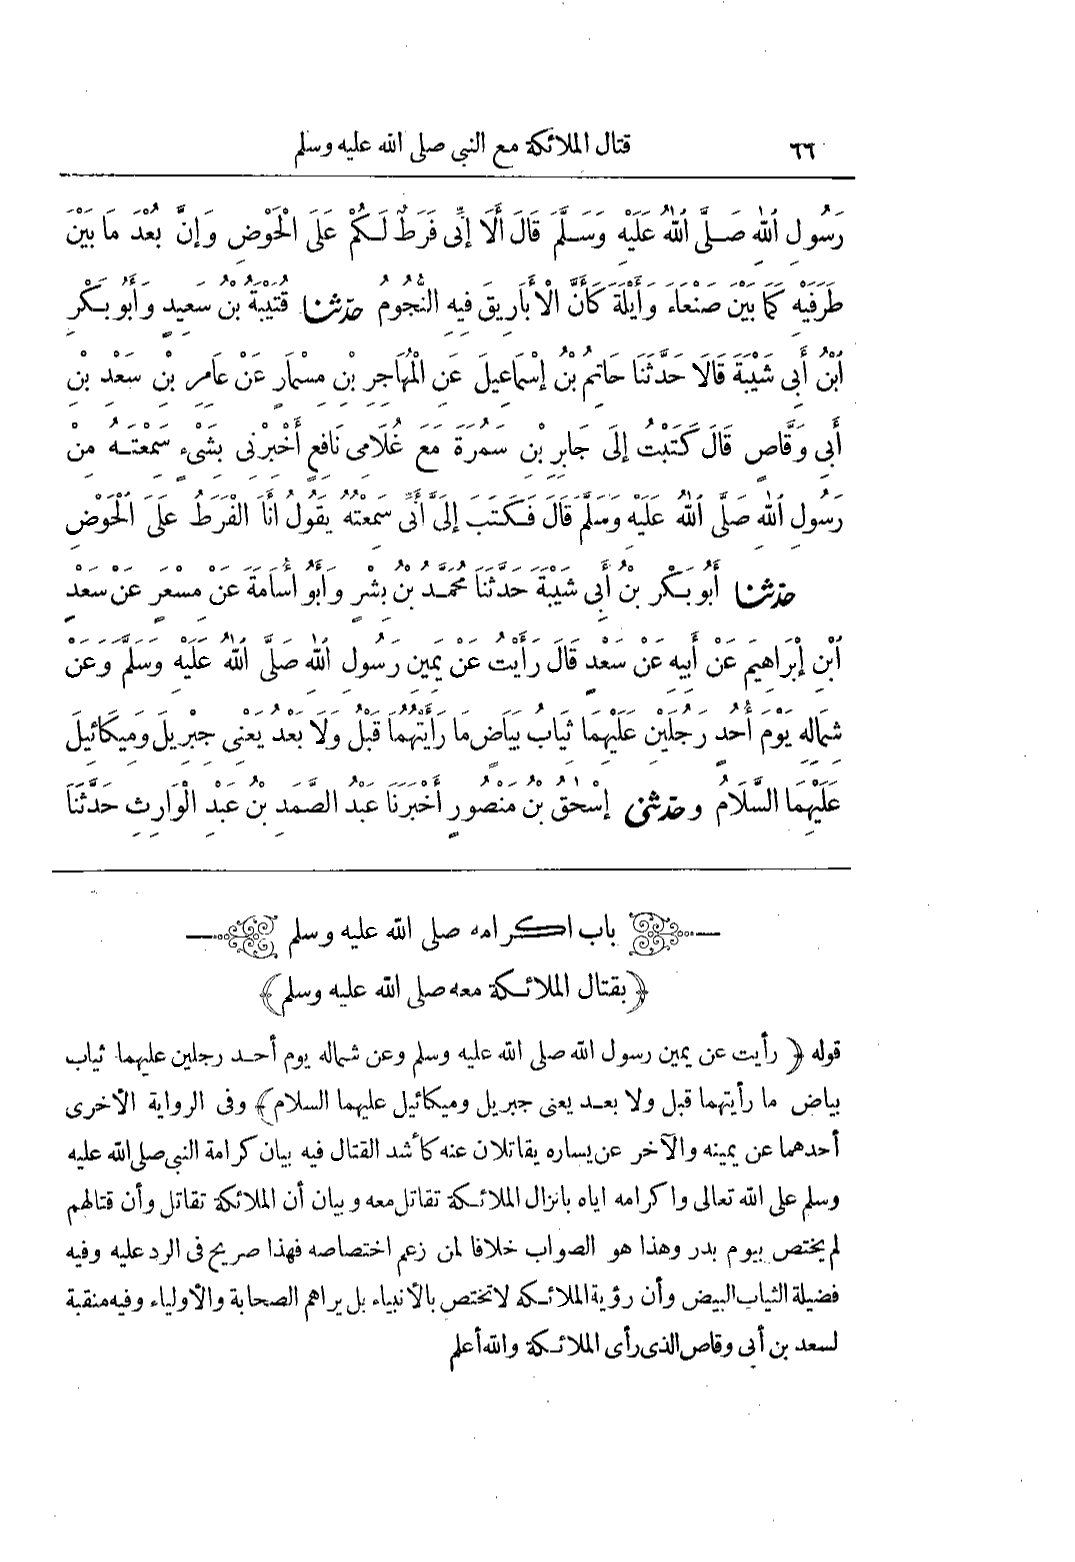 ٦٦ قتال الملائكة مع النبي صلى الله عليه وسلم
رَسُولِ اللهِ صَلَّى اللهُ عَلَيْهِ وَسَلَّمَ قَالَ أَلَا إِنِّى فَرَطٌ لَكُمْ عَلَى الْحَوْضِ وَإِنَّ بُعْدَ مَا بَيْنَ
طَرَفَيْهِ كَمَا بَيْنَ صَنْعَاءَ وَأَيْلَةَ كَأَنَّ الْأَبَارِيقَ فِيهِ النُّجُومُ حدثنا قُتَيْبَةُ بْنُ سَعِيدٍ وَأَبُو بَكْرِ
ابْنُ أَبِى شَيْبَةَ قَالَا حَدَّثَنَا حَاتِمُ بْنُ إِسْمَاعِيلَ عَنِ الْمُهَاجِرِ بْنِ مِسْمَارٍ عَنْ عَامِرِ بْنِ سَعْدِ بْنِ
أَبِى وَقَّاصٍ قَالَ كَتَبْتُ إِلَى جَابِرِ بْنِ سَمُرَةَ مَعَ غُلَامِى نَافِعٍ أَخْبِرْنِى بِشَىْءٍ سَمِعْتَهُ مِنْ
رَسُولِ اللهِ صَلَّى اللهُ عَلَيْهِ وَسَلَّمَ قَالَ فَكَتَبَ إِلَىَّ أَنِّى سَمِعْتُهُ يَقُولُ أَنَا الْفَرَطُ عَلَى الْحَوْضِ
حدثنا أَبُو بَكْرِ بْنُ أَبِى شَيْبَةَ حَدَّثَنَا مُحَمَّدُ بْنُ بِشْرٍ وَأَبُو أُسَامَةَ عَنْ مِسْعَرٍ عَنْ سَعْدِ
ابْنِ إِبْرَاهِيمَ عَنْ أَبِيهِ عَنْ سَعْدٍ قَالَ رَأَيْتُ عَنْ يَمِينِ رَسُولِ اللهِ صَلَّى اللهُ عَلَيْهِ وَسَلَّمَ وَعَنْ
شِمَالِهِ يَوْمَ أُحُدٍ رَجُلَيْنِ عَلَيْهِمَا ثِيَابُ بَيَاضٍ مَا رَأَيْتُهُمَا قَبْلُ وَلَا بَعْدُ يَعْنِى جِبْرِيلَ وَمِيكَائِيلَ
عَلَيْهِمَا السَّلَامُ وحدثنى إِسْحٰقُ بْنُ مَنْصُورٍ أَخْبَرَنَا عَبْدُ الصَّمَدِ بْنُ عَبْدِ الْوَارِثِ حَدَّثَنَا
باب اكرامه صلى الله عليه وسلم
﴿بقتال الملائكة معه صلى الله عليه وسلم﴾
قوله ﴿رأيت عن يمين رسول الله صلى الله عليه وسلم وعن شماله يوم أحد رجلين عليهما ثياب
بياض ما رأيتهما قبل ولا بعد يعنى جبريل وميكائيل عليهما السلام﴾ وفى الرواية الأخرى
أحدهما عن يمينه والآخر عن يساره يقاتلان عنه كأشد القتال فيه بيان كرامة النبي صلى الله عليه
وسلم على الله تعالى واكرامه اياه بانزال الملائكة تقاتل معه وبيان أن الملائكة تقاتل وأن قتالهم
لم يختص بيوم بدر وهذا هو الصواب خلافا لمن زعم اختصاصه فهذا صريح فى الرد عليه وفيه
فضيلة الثياب البيض وأن رؤية الملائكة لا تختص بالأنبياء بل يراهم الصحابة والأولياء وفيه منقبة
لسعد بن أبى وقاص الذى رأى الملائكة والله أعلم